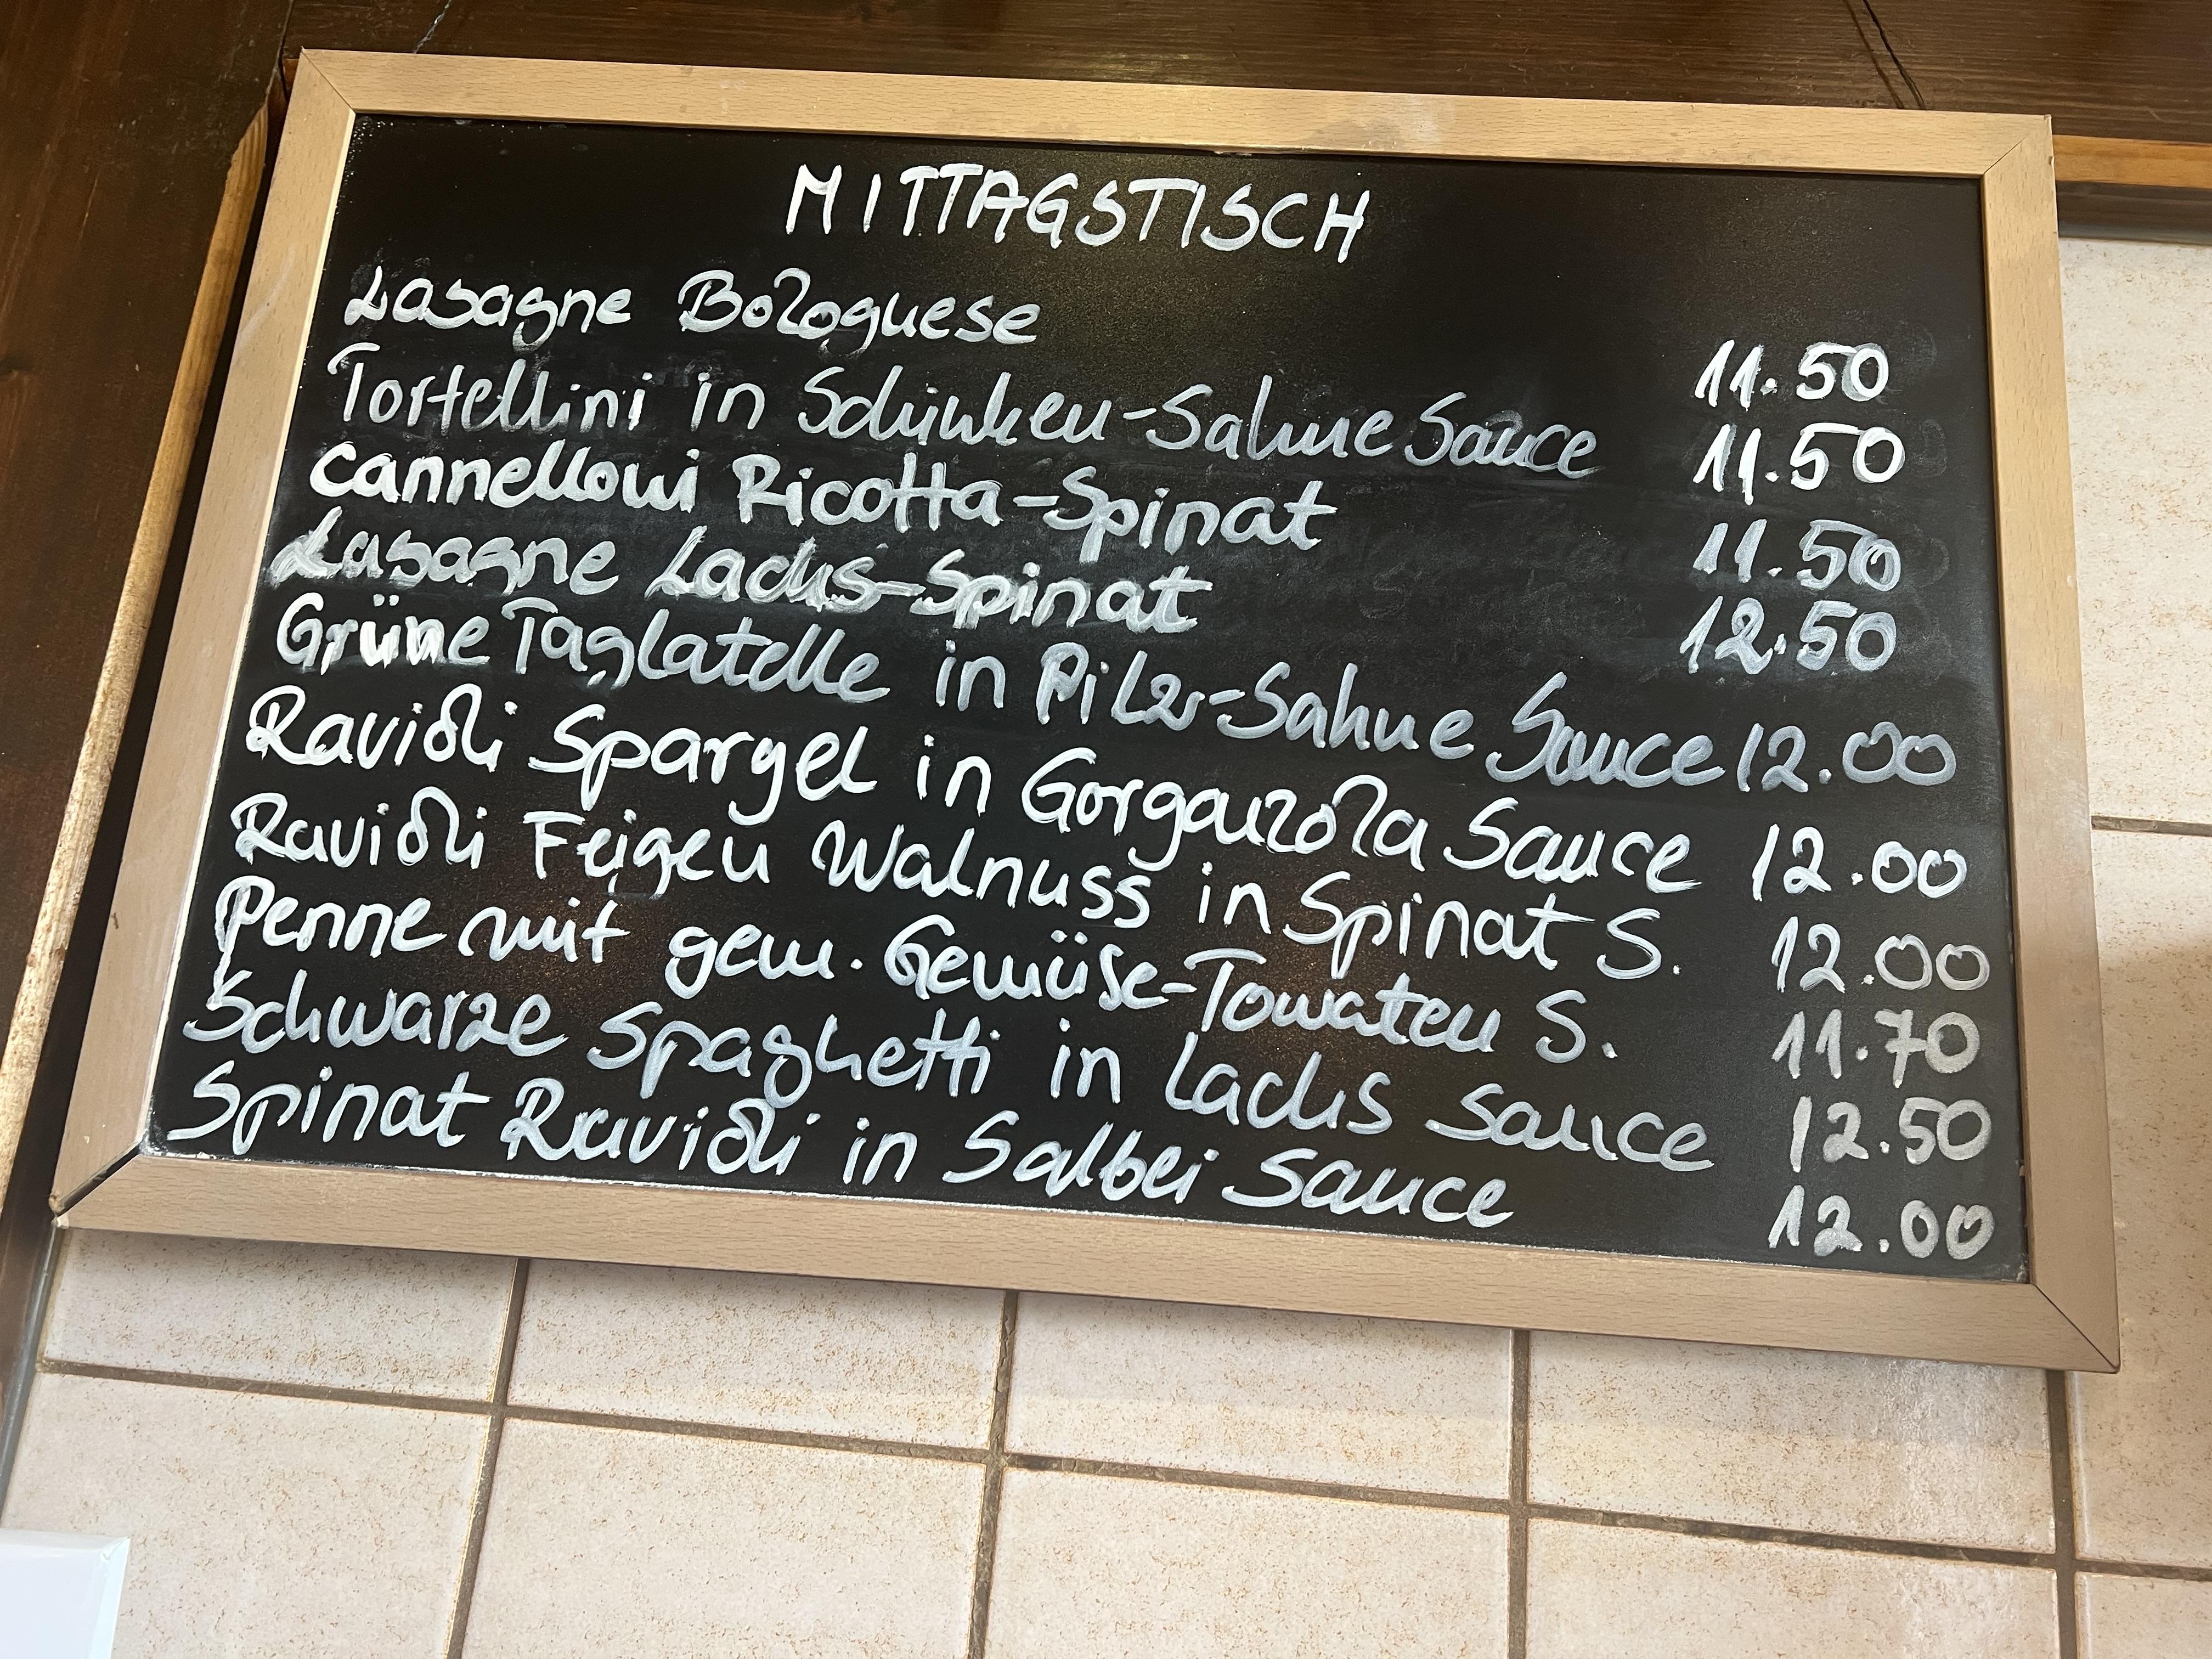 MITTAGSTISCH
Lasagne Bolognese 11.50
Tortellini in Schinken-Sahne Sauce 11.50
Cannelloni Ricotta-Spinat 11.50
Lasagne Lachs-Spinat 12.50
Grüne Taglatelle in Pilz-Sahne Sauce 12.00
Ravioli Spargel in Gorganzola Sauce 12.00
Ravioli Feigen Walnuss in Spinat S. 12.00
Penne mit gem. Gemüse-Tomaten S. 11.70
Schwarze Spaghetti in Lachs Sauce 12.50
Spinat Ravioli in Salbei Sauce 12.00